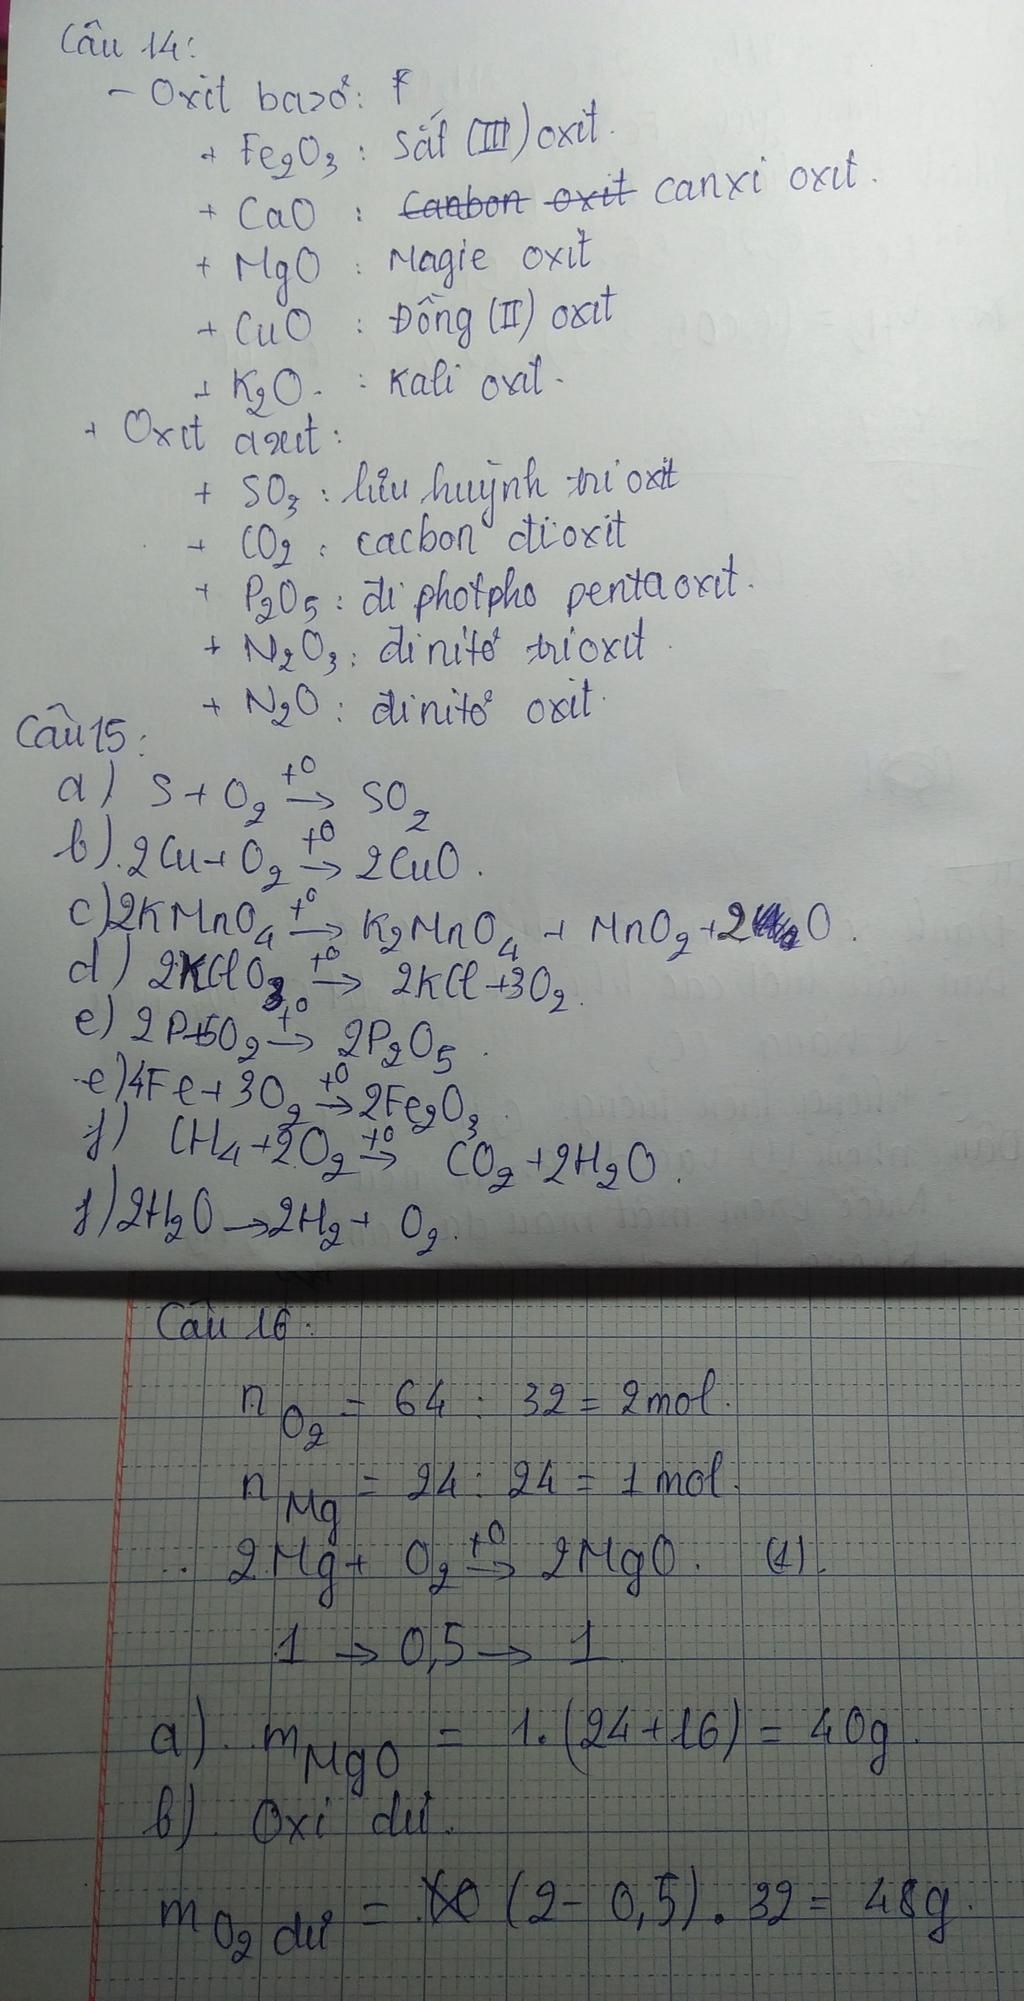 Câu 14:
- Oxit bazơ: F
+ Fe2O3 : Sắt (III) oxit.
+ CaO : Canbon oxit canxi oxit.
+ MgO : Magie oxit
+ CuO : Đồng (II) oxit
+ K2O. : Kali oxit.
+ Oxit axit:
+ SO3 : lưu huỳnh tri oxit
+ CO2 : cacbon đioxit
+ P2O5 : đi photpho pentaoxit.
+ N2O3 : đi nitơ trioxit
+ N2O : đinitơ oxit.
Câu 15:
a) S + O2 →(t0) SO2
b). 2Cu + O2 →(t0) 2CuO.
c) 2KMnO4 →(t0) K2MnO4 + MnO2 + 2O.
d) 2KClO3 →(t0) 2KCl + 3O2.
e) 2P + 5O2 →(t0) 2P2O5.
e) 4Fe + 3O2 →(t0) 2Fe2O3.
f) CH4 + 2O2 →(t0) CO2 + 2H2O.
f) 2H2O → 2H2 + O2.
Câu 16:
nO2 = 64 : 32 = 2 mol.
nMg = 24 : 24 = 1 mol.
2Mg + O2 →(t0) 2MgO. (1).
1 → 0,5 → 1
a). mMgO = 1.(24+16) = 40g.
b). Oxi dư.
mO2 dư = (2 - 0,5). 32 = 48g.